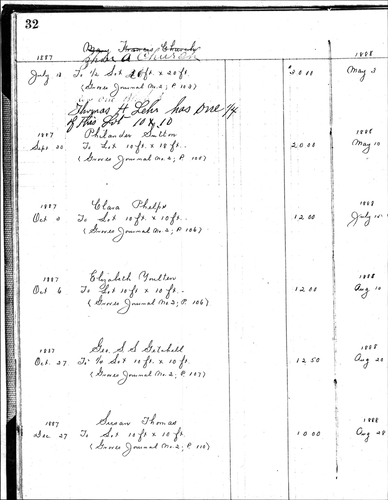 32
Francis Church
1887 Church 1888
July To 1/2 Lot 20 ft. x 20 ft. May 3
(Graves Journal No. 2; P. 103)
Thomas A Lehr has one 1/4
of this Lot 10 x 10
1887 Philander Sutton 1888
Sept To Lot 10 ft x 18 ft. 20 00 May
(Graves Journal No. 2; P. 105)
1887 Clara Phelps 1888
Oct To Lot 10 ft. x 10 ft. 12 00 July
(Graves Journal No. 2; P. 106)
1887 Elizabeth 1888
Oct 6 To Lot 10 ft x 10 ft. 12 00 Aug 10
(Graves Journal No. 2; P. 106)
1887 Geo. S S Getchell 1888
Oct. 27 To 1/2 Lot 10 ft x 10 ft. 12 50 Aug 20
(Graves Journal No. 2; P. 107)
1887 Susan Thomas 1888
Dec 27 To Lot 10 ft x 10 ft. 10 00 Aug 28
(Graves Journal No. 2; P. 110)